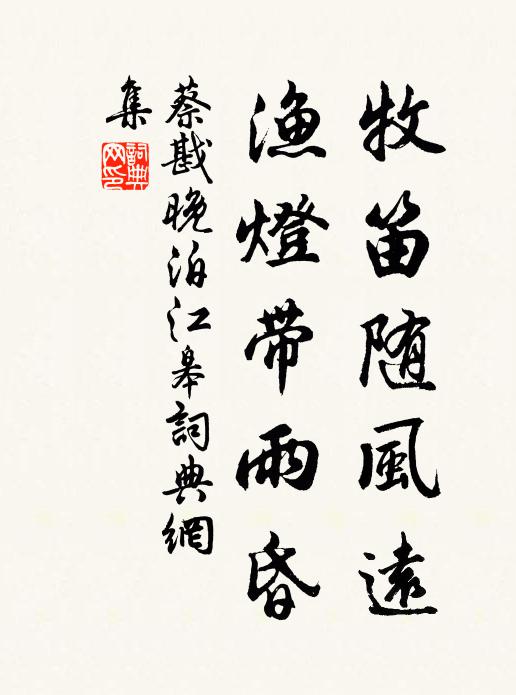 牧笛随風遠
漁燈帶雨昏
蔡戡晚泊江皋詞典網
集
詞典
网印